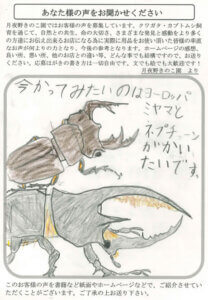 あなた様の声をお聞かせください
月夜野きのこ園ではお客様の声を募集しています。クワガタ・カブトムシ飼
育を通じて、自然との共生、命の大切さ、さまざまな発見と感動をより多く
の方達にお伝え出来るお店になる為に実際に用品をお使い頂いた皆様の率直
なお声が何よりの力となり、今後の参考となります。ホームページの感想、
良い所、悪い所、他のお店との違い等、どんな事でも結構ですので、お送り
下さい。応募はがきの書き方は一切自由です。文でも絵でも大歓迎です!
月夜野きのこ園 より
今かってみたいのは
ヨーロッパ
ミヤマと
ネプチューン
がかい
たいです。
このお客様の声を書籍など紙面やホームページなどで、ご紹介させてい
ただくことがございます。ご了承の上お送り下さい。